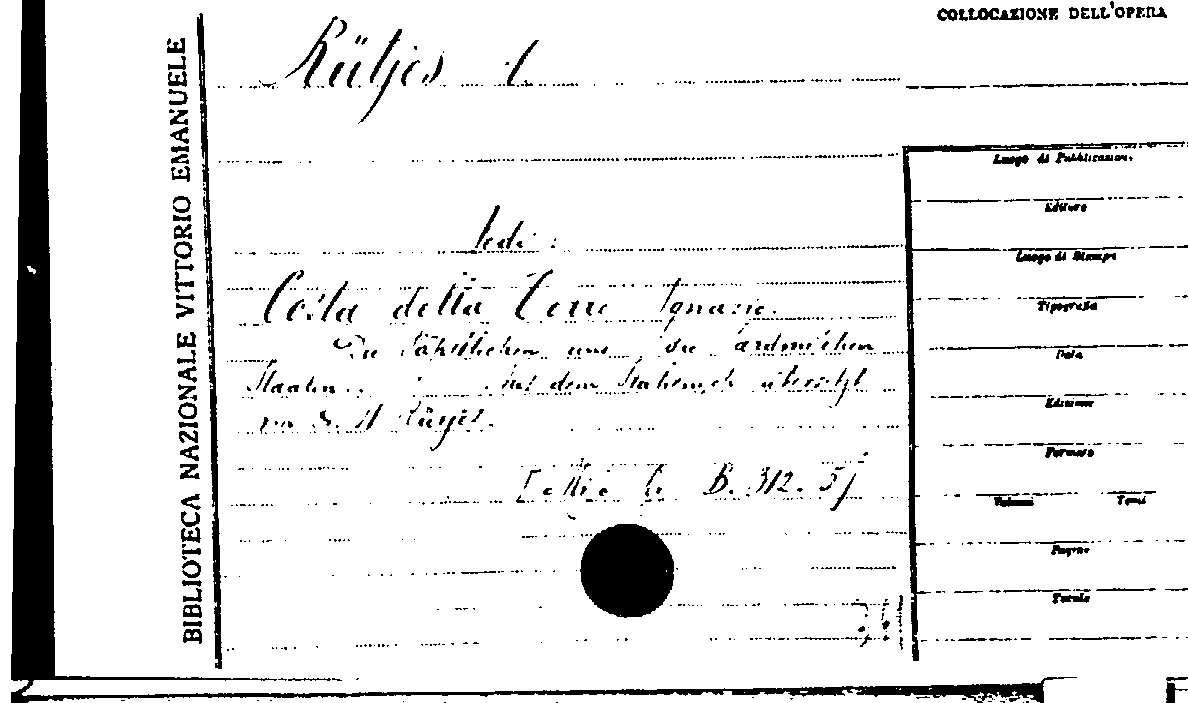 BIBLIOTECA NAZIONALE VITTORIO EMANUELE
Rütjes
Vedi:
Costa della Torre Ignazio.
Die Päbstlichen und die sardinischen
Staaten. Aus dem Italienisch übersetzt
von Rütjes.
B. 312. 5]
COLLOCAZIONE DELL'OPERA
Luogo di Pubblicazion.
Editore
Luogo di Stampa
Tipografia
Data
Edizione
Formato
Volumi Tomi
Pagine
Tavole